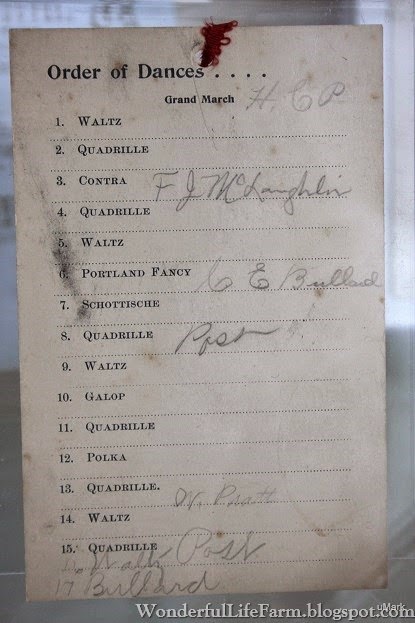 Order of Dances . . . .
Grand March H. C P
1. Waltz
2. Quadrille
3. Contra F J McLaughlin
4. Quadrille
5. Waltz
6. Portland Fancy C E Bullard
7. Schottische
8. Quadrille Post
9. Waltz
10. Galop
11. Quadrille
12. Polka
13. Quadrille. W. Pratt
14. Waltz
15. Quadrille
16 Waltz Post
17 Bullard
uMark
WonderfulLifeFarm.blogspot.com